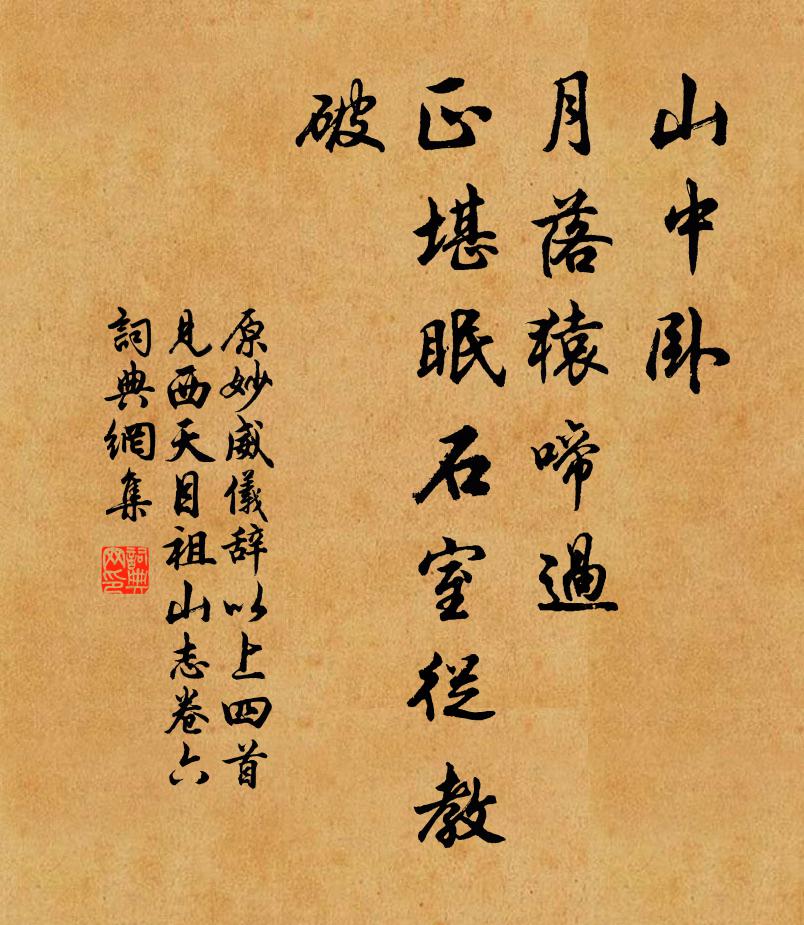 山中卧
月落猿啼過
正堪眠石室從教
破
原妙威儀辞以上四首
見西天目祖山志卷六
詞典網集
詞典网印